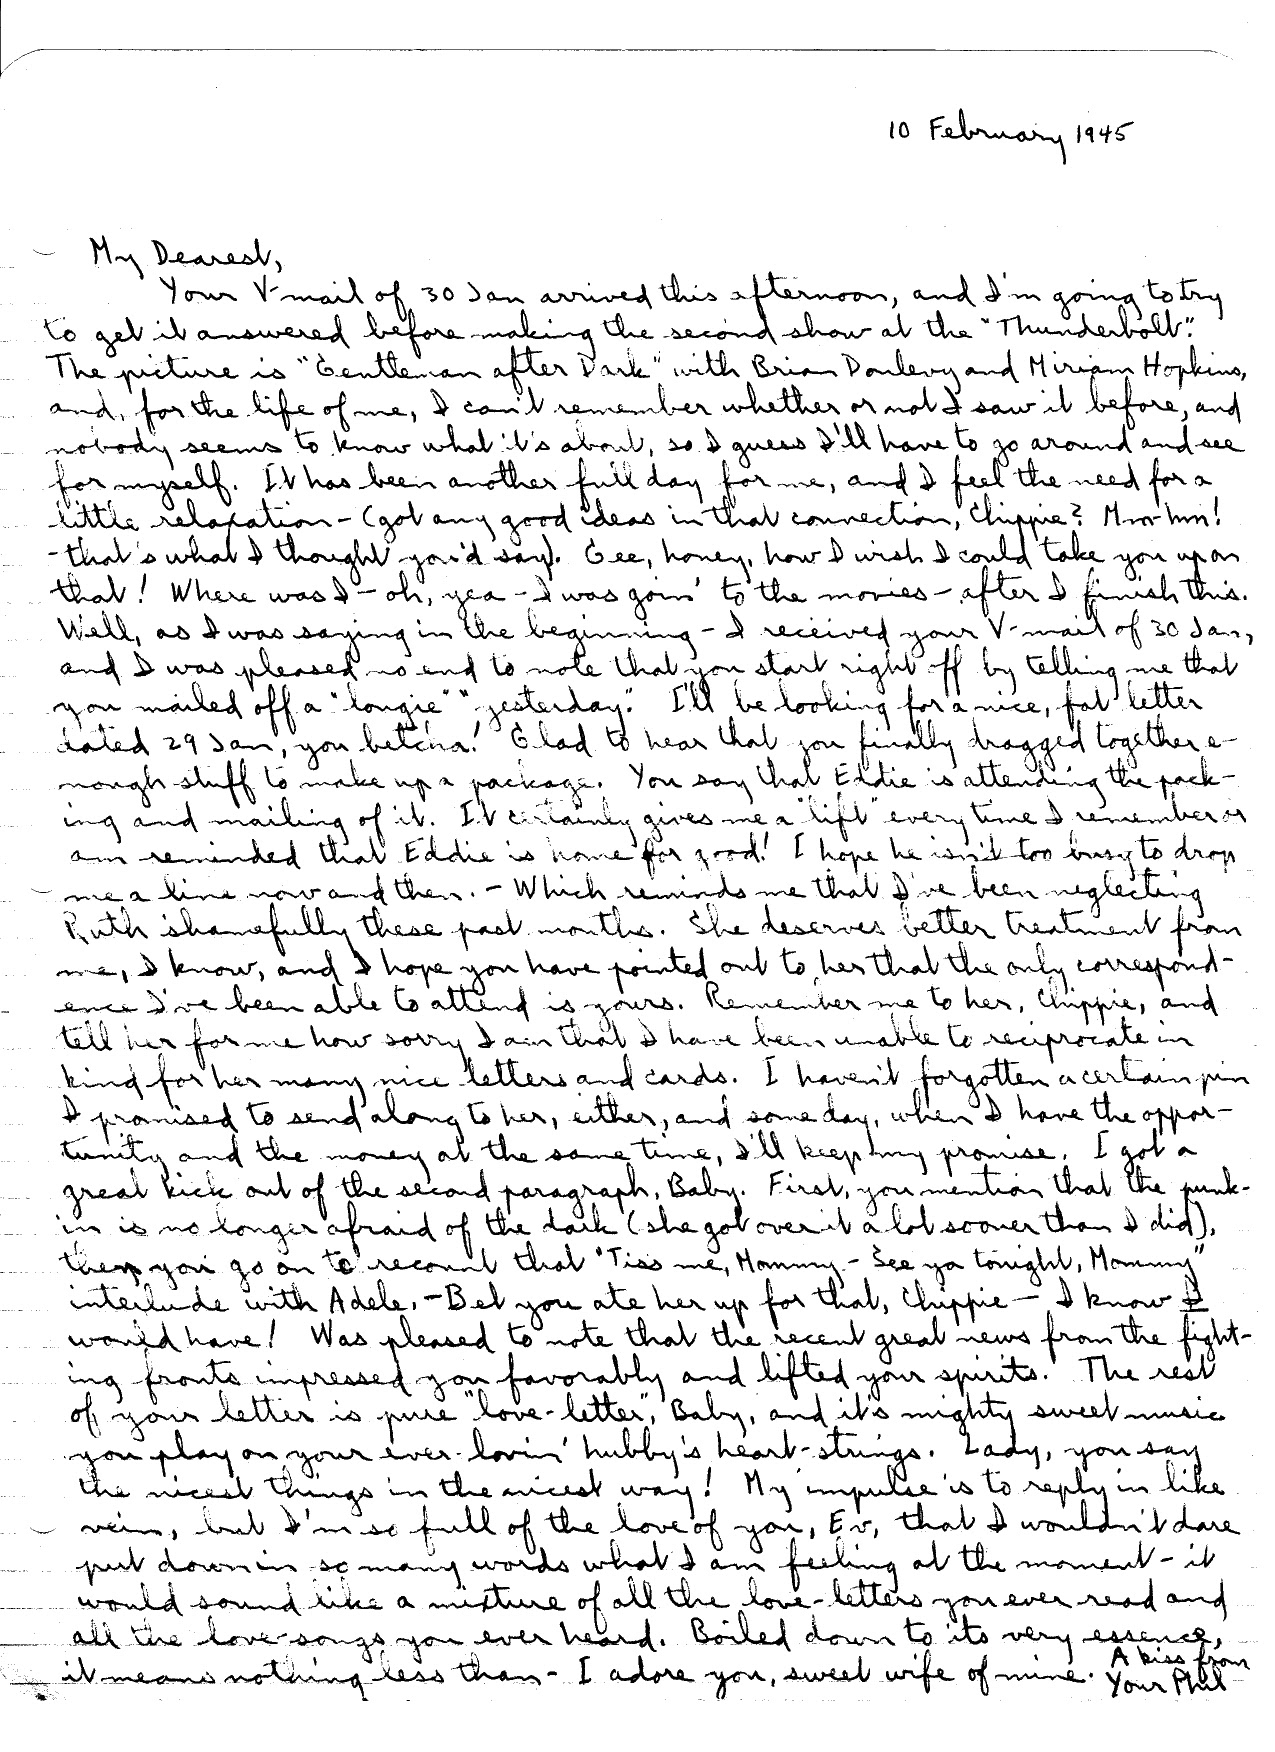 10 February 1945
My Dearest,
Your V-mail of 30 Jan arrived this afternoon, and I'm going to try
to get it answered before making the second show at the "Thunderbolt".
The picture is "Gentleman after Dark" with Brian Donlevy and Miriam Hopkins,
and, for the life of me, I can't remember whether or not I saw it before, and
nobody seems to know what it's about, so I guess I'll have to go around and see
for myself. It has been another full day for me, and I feel the need for a
little relaxation - (got any good ideas in that connection, Chippie? Mm-hm!
- that's what I thought you'd say). Gee, honey, how I wish I could take you up on
that! Where was I - oh, yea - I was goin' to the movies - after I finish this.
Well, as I was saying in the beginning - I received your V-mail of 30 Jan,
and I was pleased no end to note that you start right off by telling me that
you mailed off a "longie" "yesterday." I'll be looking for a nice, fat letter
dated 29 Jan, you betcha! Glad to hear that you finally dragged together e-
nough stuff to make up a package. You say that Eddie is attending the pack-
ing and mailing of it. It certainly gives me a "lift" every time I remember or
am reminded that Eddie is home for good! I hope he isn't too busy to drop
me a line now and then. - Which reminds me that I've been neglecting
Ruth shamefully these past months. She deserves better treatment from
me, I know, and I hope you have pointed out to her that the only correspond-
ence I've been able to attend is yours. Remember me to her, Chippie, and
tell her for me how sorry I am that I have been unable to reciprocate in
kind for her many nice letters and cards. I haven't forgotten a certain pin
I promised to send along to her, either, and some day, when I have the oppor-
tunity and the money at the same time, I'll keep my promise. I got a
great kick out of the second paragraph, Baby. First, you mention that the punk-
in is no longer afraid of the dark (she got over it a lot sooner than I did),
then you go on to recount that "Tiss me, Mommy - See ya tonight, Mommy"
interlude with Adele. - Bet you ate her up for that, Chippie - I know I
would have! Was pleased to note that the recent great news from the fight-
ing fronts impressed you favorably and lifted your spirits. The rest
of your letter is pure "love-letter", Baby, and it's mighty sweet music
you play on your ever-lovin' hubby's heart-strings. Lady, you say
the nicest things in the nicest way! My impulse is to reply in like
vein, but I'm so full of the love of you, Ev, that I wouldn't dare
put down in so many words what I am feeling at the moment - it
would sound like a mixture of all the love-letters you ever read and
all the love-songs you ever heard. Boiled down to its very essence,
it means nothing less than - I adore you, sweet wife of mine.
A kiss from
Your Phil